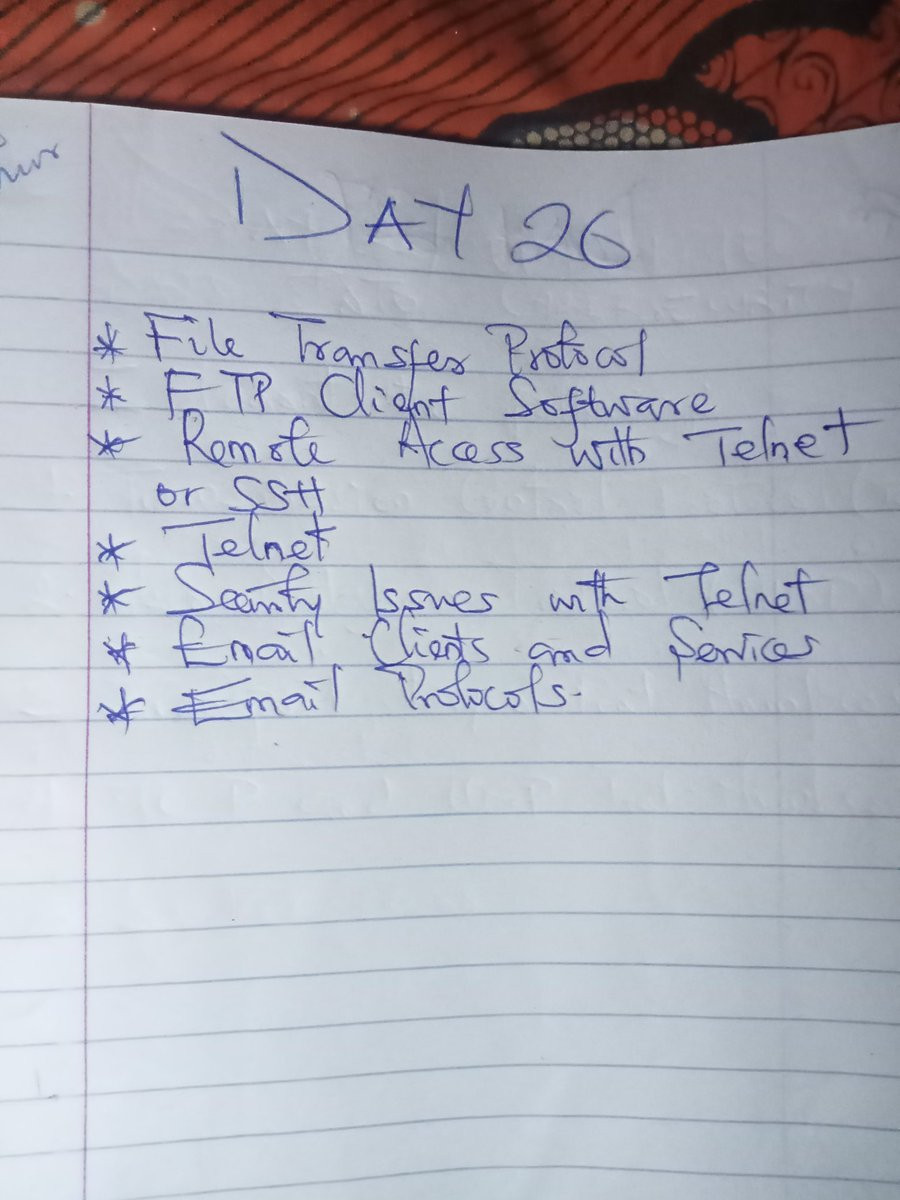 DAY 26
* File Transfer Protocol
* FTP Client Software
* Remote Access with Telnet
or SSH
* Telnet
* Security Issues with Telnet
* Email Clients and Services
* Email Protocols.